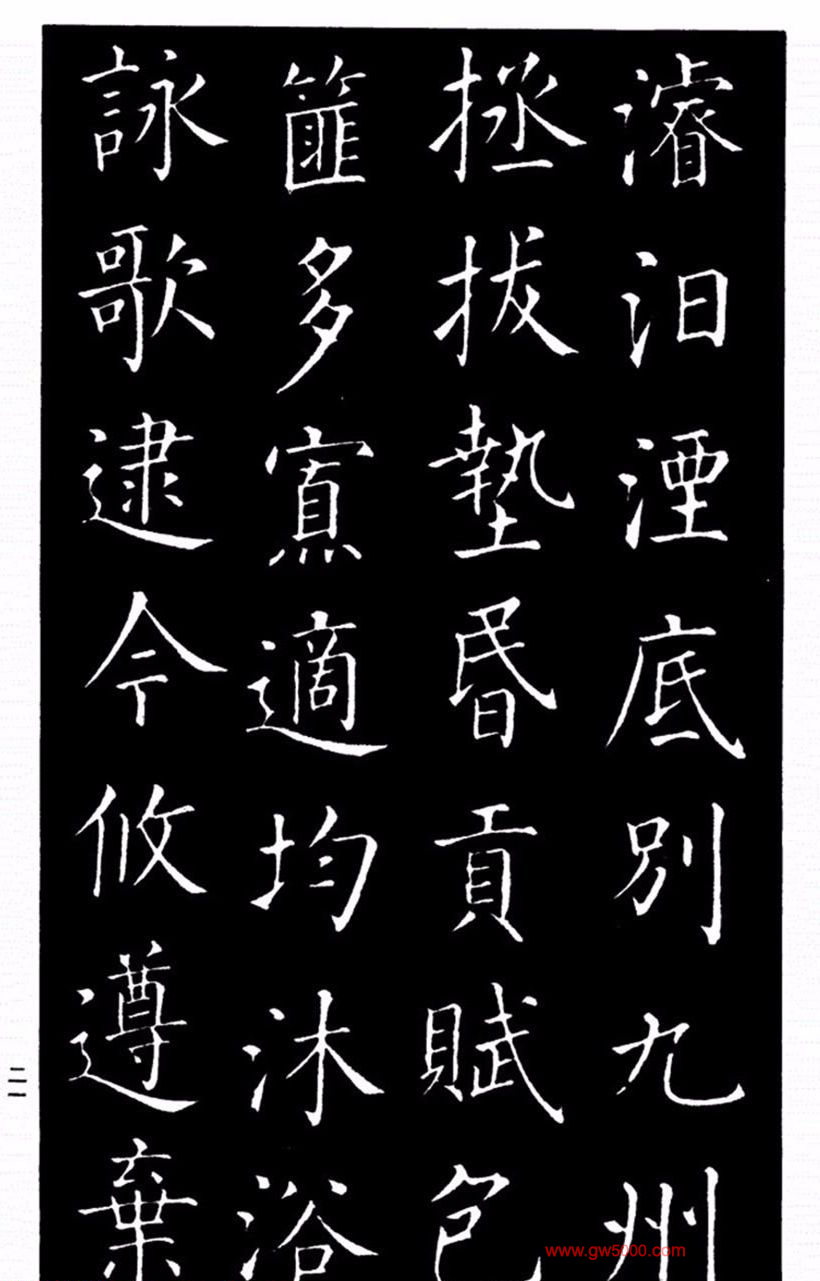 濬汨湮底別九州
拯拔墊昬貢賦包
篚多寡適均沐浴
詠歌逮今攸遵棄
二一
www.gw5000.com